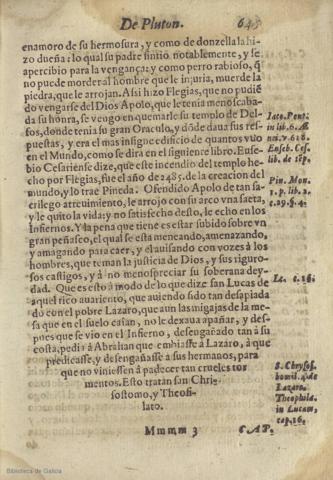 De Pluton. 645
enamoro de su hermosura, y como de donzella la hi-
zo dueña: lo qual su padre sintio notablemente, y se
apercibio para la vengança: y como perro rabioso, q̃
no puede morder al hombre que le injuria, muerde la
piedra, que le arrojan. Asi hizo Flegias, que no pudiẽ
do vengarse del Dios Apolo, que le tenia menoscaba-
da su honra, se vengo en quemarle su templo de Del-
fos, donde tenia su gran Oraculo, y dõde daua sus res-
puestas, y era el mas insigne edificio de quantos vuo
en el Mundo, como se dira en el siguiente libro. Euse-
bio Cesariense dize, que este incendio del templo he-
cho por Flegias, fue el año de 2485. de la creacion del
mundo, y lo trae Pineda. Ofendido Apolo de tan sa-
crilego atreuimiento, le arrojo con su arco vna saeta,
y le quito la vida: y no satisfecho desto, le echo en los
Infiernos. Y la pena que tiene es estar subido sobre vn
gran peñasco, el qual se esta meneando, amenazando,
y amagando para caer, y el auisando con vozes à los
hombres, que teman la justicia de Dios, y sus riguro-
sos castigos, y à no menospreciar su soberana dey-
dad. Que es esto à modo de lo que dize san Lucas de
aquel rico auariento, que auiendo sido tan desapiada
do con el pobre Lazaro, que aun las migajas de la me-
sa que en el suelo caian, no le dexaua apañar, y des-
pues que se vio en el Infierno, desengañado tan à su
costa, pedi à Abrahan que embiasse a Lazaro, à que
predicasse, y desengañasse a sus hermanos, para
que no viniessen à padecer tan crueles tor
mentos. Esto tratan san Chri-
sostomo, y Theofi-
lato.
Iaco. Pont.
in lib. 6. AE
n. v. 618.
Euseb. Ces.
lib. de tẽp.
Pin. Mon.
1. p. lib. 2.
c. 29. §. 4.
Lc. c. 16.
S. Chrysos.
homil. 4. de
Lazaro.
Theophila.
in Lucam,
cap. 16.
Mmmm 3 CAP.
Biblioteca de Galicia